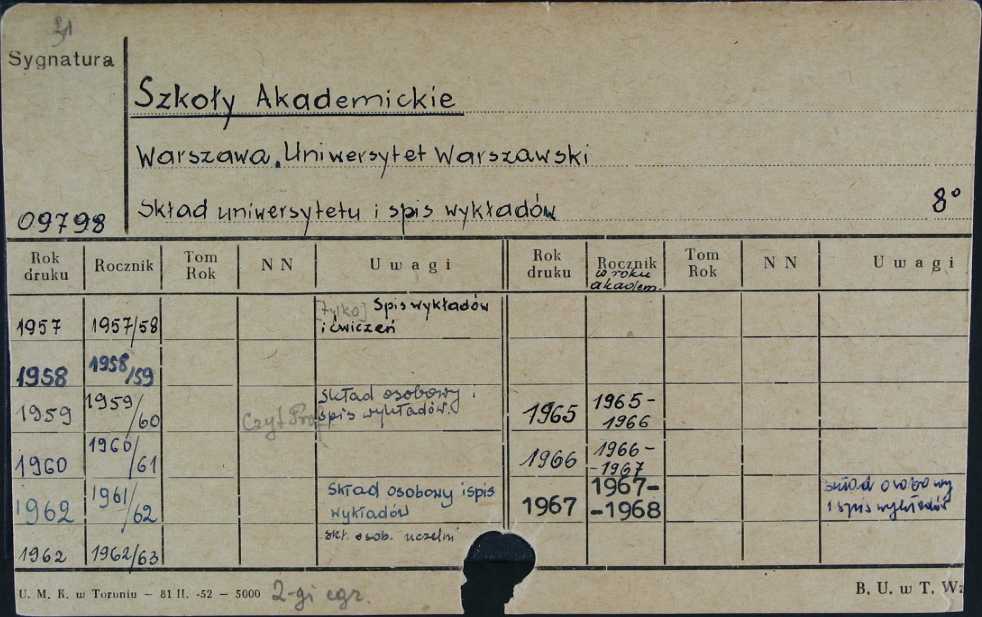 Sygnatura
Szkoły Akademickie
Warszawa. Uniwersytet Warszawski
09798
Skład uniwersytetu i spis wykładów 8°
Rok druku Rocznik Tom Rok NN Uwagi Rok druku Rocznik w roku akadem. Tom Rok NN Uwagi
1957 1957/58 [tylko] Spis wykładów
i ćwiczeń
1958 1958/59
1959 1959/60 Skład osobowy i
spis wykładów 1965 1965-
1966
1960 1960/61 1966 1966-
-1967
1962 1961/62 Skład osobowy i spis
wykładów 1967 1967-
-1968 skład osobowy
i spis wykładów
1962 1962/63 skł. osob. uczelni
U. M. K. w Toruniu – 81 II. -52 – 5000 2-gi egz. B. U. w T. Wz